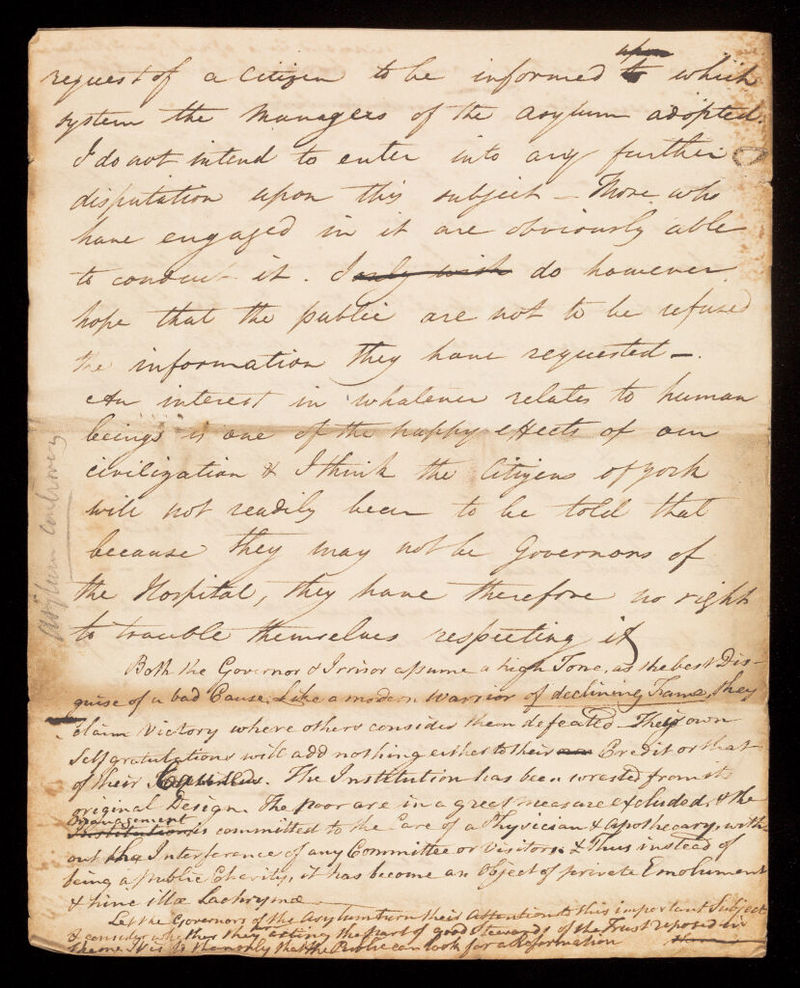 upon
request of a Citizen to be informed to which
system the Managers of the Asylum adopted.
I do not intend to enter into any further
disputation upon this subject – Those who
have engaged in it are obviously able
to conduct it. I only wish do however
hope that the public are not to be refused
the information they have requested –.
An interest in whatever relates to human
beings is one of the happy effects of our
civilization & I think the Citizens of York
will not readily bear to be told that
because they may not be Governors of
the Hospital, they have therefore no right
to trouble themselves respecting it
Both the Governor & Irrisor assume a high Tone, as the best Dis-
guise of a bad Cause. Like a modern Warrior of declining Fame, they
claim Victory where others consider them defeated. Their own
Self gratulations will add nothing either to their Credit or that
of their. The Institution has been wrested from its
original Design. The poor are in a great measure excluded, & the
Management
Institution is committed to the Care of a Physician & Apothecary, with-
out the Interference of any Committee or Visitors. & Thus instead of
being a public Charity, it has become an Object of private Emolument
& hinc illæ Lachrymæ
Let the Governors of the Asylum turn their Attention to this important Subject
& consider whether they acting the part of good Stewards of the Trust reposed in
them. It is to them only that the Public can look for a Reformation
Asylum Controversy